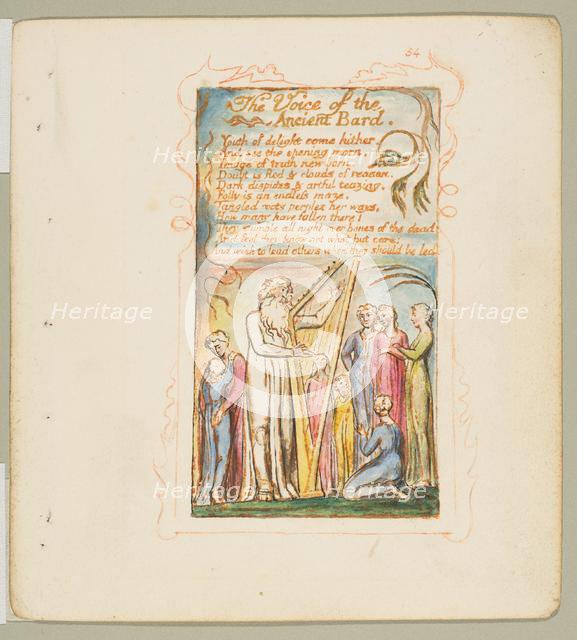 54
The Voice of the
Ancient Bard.
Youth of delight come hither,
And see the opening morn,
Image of truth new born.
Doubt is fled & clouds of reason.
Dark disputes & artful teazing.
Folly is an endless maze.
Tangled roots perplex her ways.
How many have fallen there!
They stumble all night over bones of the dead:
And feel they know not what but care:
And wish to lead others when they should be led
Heritage
Heritage
Heritage
Heritage
Heritage
Heritage
Heritage
Heritage